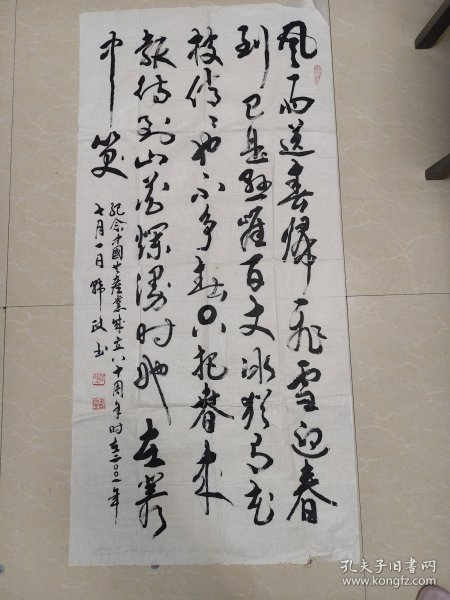 风雨送春归飞雪迎春
到已是悬崖百丈冰犹有花
枝俏〻也不争春只把春来
报待到山花烂漫时她在丛
中笑
纪念中國共産党成立八十周年时在二〇〇一年
七月一日韩政书
孔夫子旧书网
www.kongfz.com